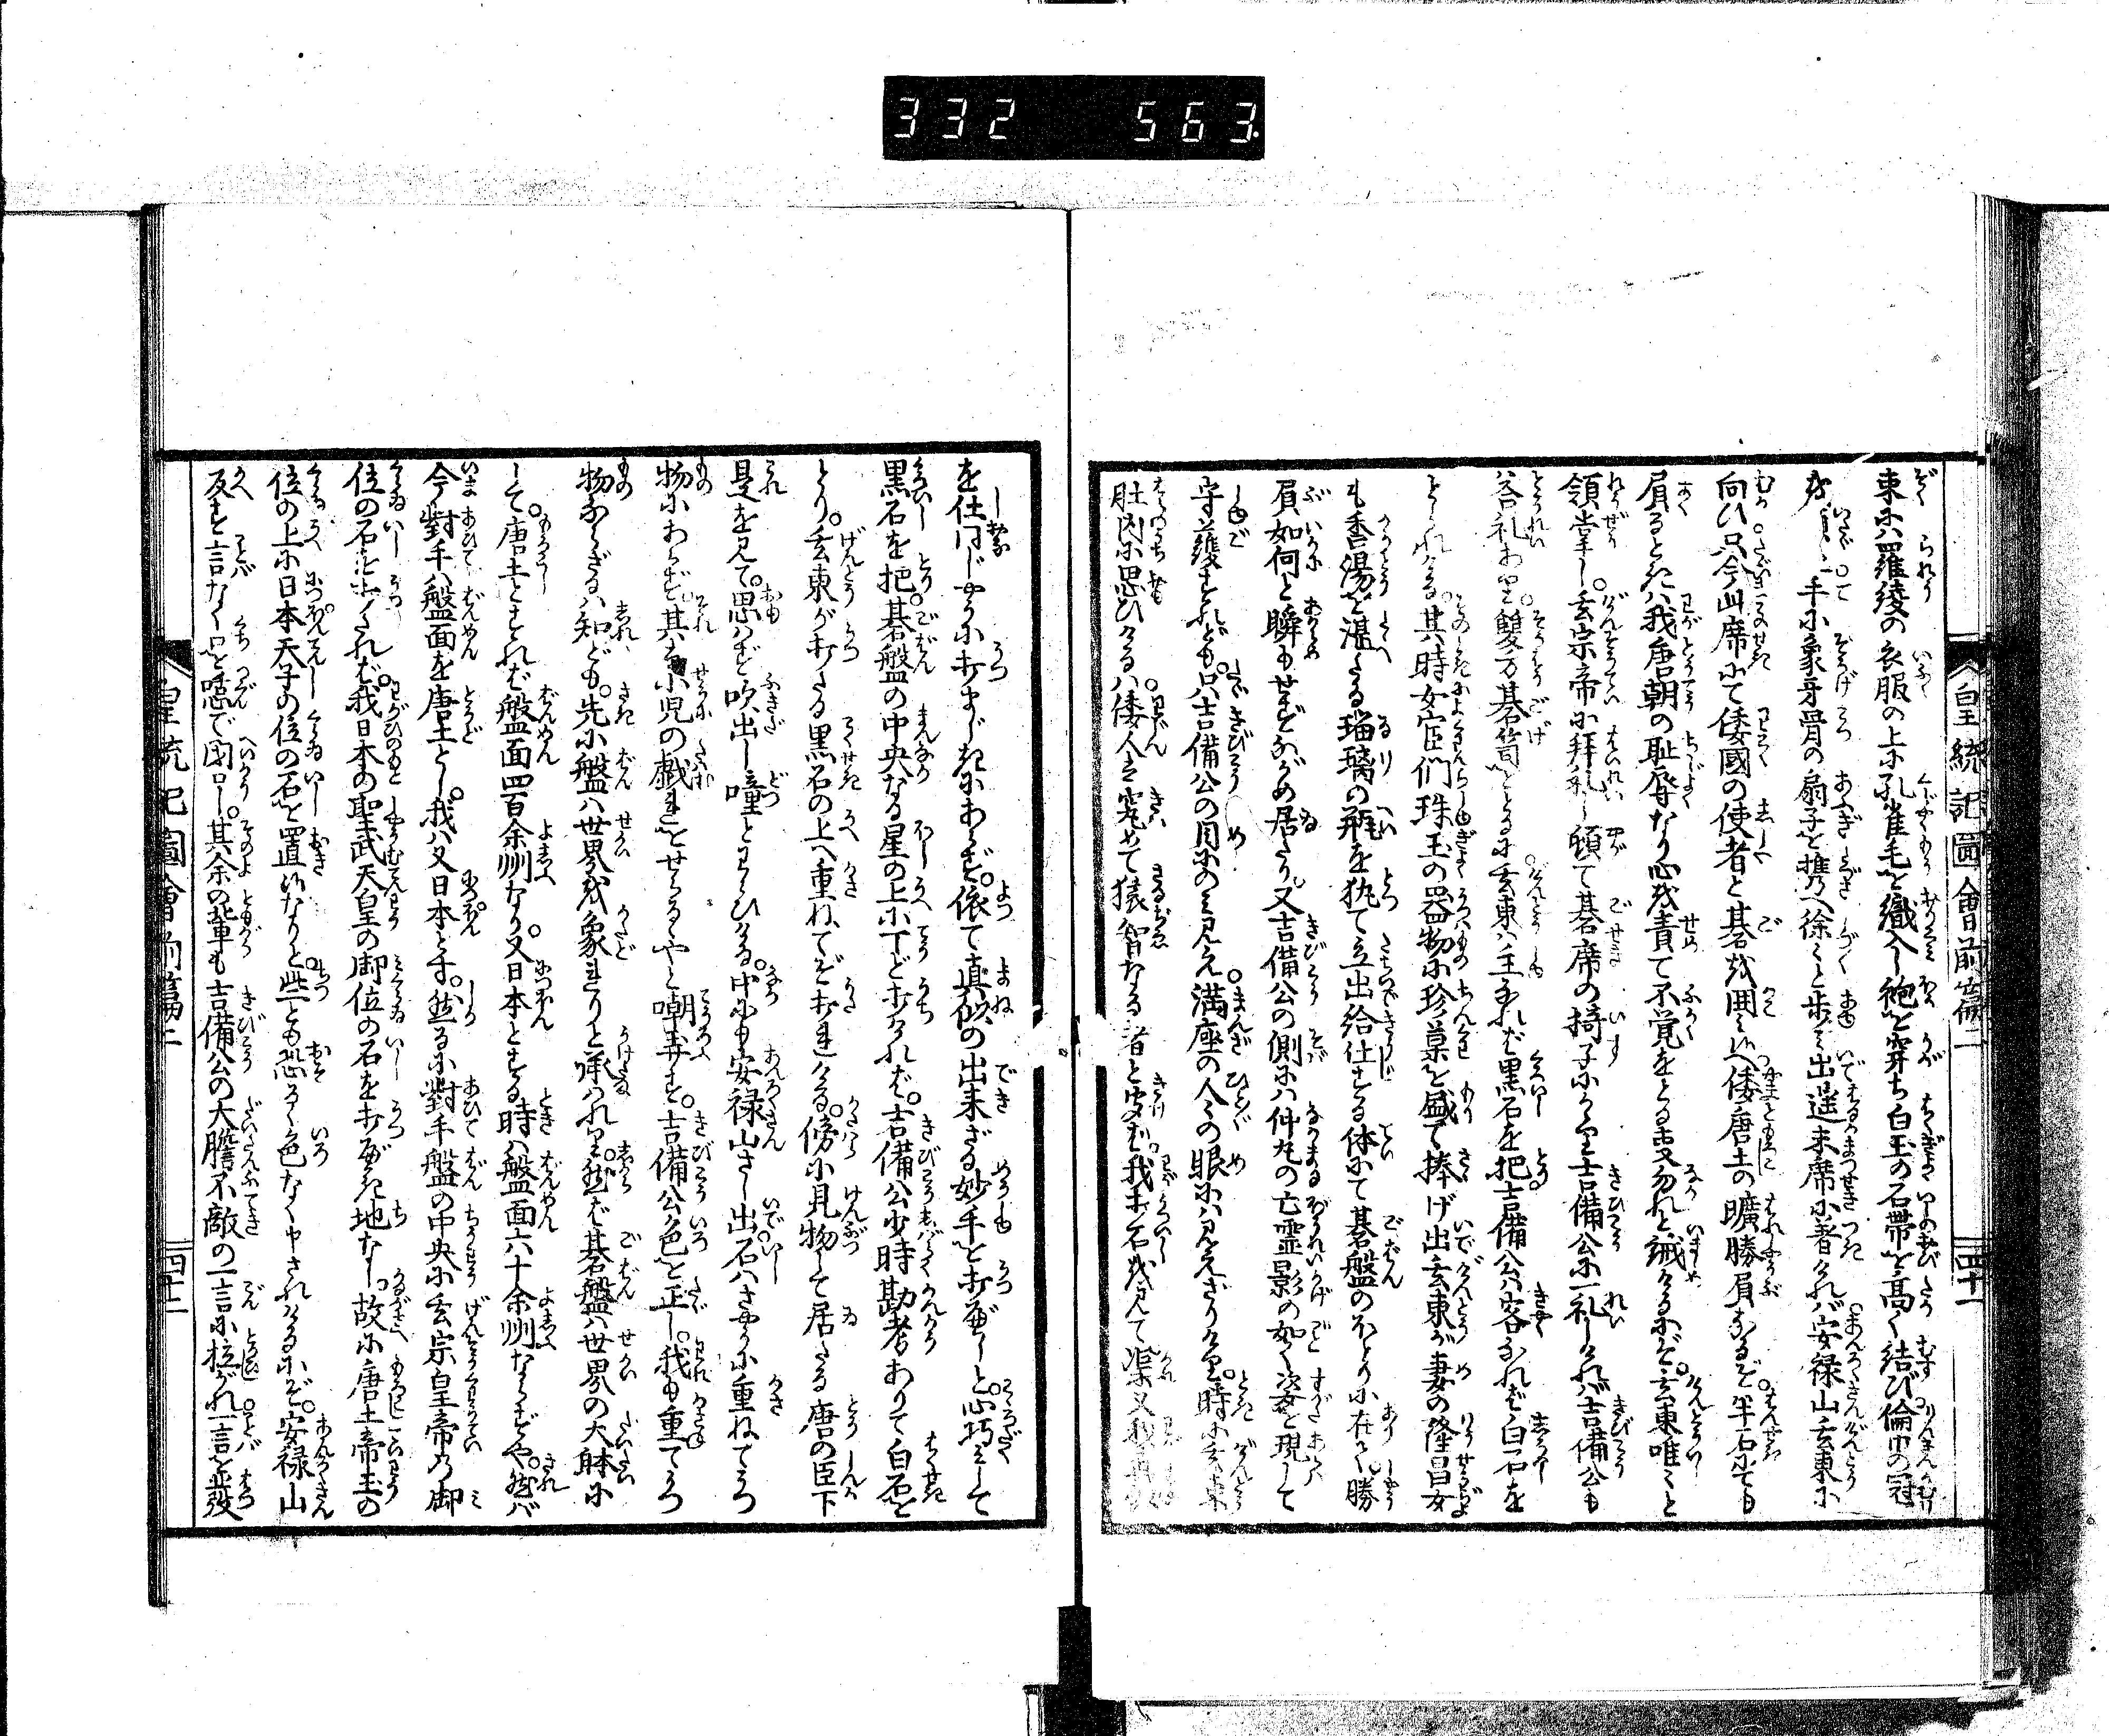 332 563.
皇統記圖會前篇二 四十一
束ふハ羅綾の衣服の上ふ孔雀毛を織入し袍を穿ち白玉の石帯を高く結び倫巾の冠
手ふ象牙骨の扇子を携へ徐々と歩み出遥末席ふ著けれバ安禄山玄東ふ
向ひ只今此席ふて倭國の使者と碁を囲み候ヘ倭唐土の曠勝負なるぞ半石ふても
負るときハ我唐朝の耻辱なり心を責て不覚をとる事勿れと誡けるふぞ玄東唯々と
領掌し玄宗帝ふ拝礼し頓て碁席の椅子ふかゝり吉備公ふ一礼しけれバ吉備公も
答礼あり雙方碁笥をとるふ玄東ハ主なれバ黒石を把吉備公ハ客なれバ白石を
とられける其時女官們珠玉の器物ふ珍菓を盛て捧げ出玄東が妻の隆昌女
も香湯を湛へる瑠璃の瓶を執て立出給仕する体ふて碁盤のほとりふ在て勝
負如何と瞬もせずながめ居たり又吉備公の側ふハ仲丸の亡霊影の如く姿を現して
守護すれども只吉備公の目ふのミ見え満座の人々の眼ふハ見えざりけり時ふ玄東
肚内ふ思ひけるハ倭人ハ究めて猿智なる者と聞バ我まづ石を見て渠又我
を仕同じやうふ打まじきふあらず依て真似の出来ざる妙手を打べしと心巧ミして
黒石を把碁盤の中央なる星の上ふ丁ど打けれバ吉備公少時勘考ありて白石を
とり玄東が打たる黒石の上へ重ねてぞ打れける傍ふ見物して居たる唐の臣下
是を見て思ハず吹出し噇とわらひける中ふも安禄山さし出石ハさやうふ重ねてうつ
物ふあらず其ハ小児の戯れをせらるゝやと嘲弄す吉備公色を正し我も重てうつ
物ならざるハ知ども先ふ盤ハ世界を象れりと承ハれり然ば碁盤ハ世界の大躰ふ
して唐土とすれバ盤面四百余洲なり又日本とする時ハ盤面六十余州ならずや然バ
今對手ハ盤面を唐土とし我ハ又日本とす然るふ對手盤の中央ふ玄宗皇帝の御
位の石を打れバ我日本の聖武天皇の御位の石を打べき地なし故ふ唐土帝王の
位の上ふ日本天子の位の石を置候なりと些とも恐るゝ色なく申されけるふぞ安禄山
返す言なく口を噤で閉口し其余の輩も吉備公の大膽不敵の一言ふ拉がれ一言を發
皇統記圖會前篇二 四十二